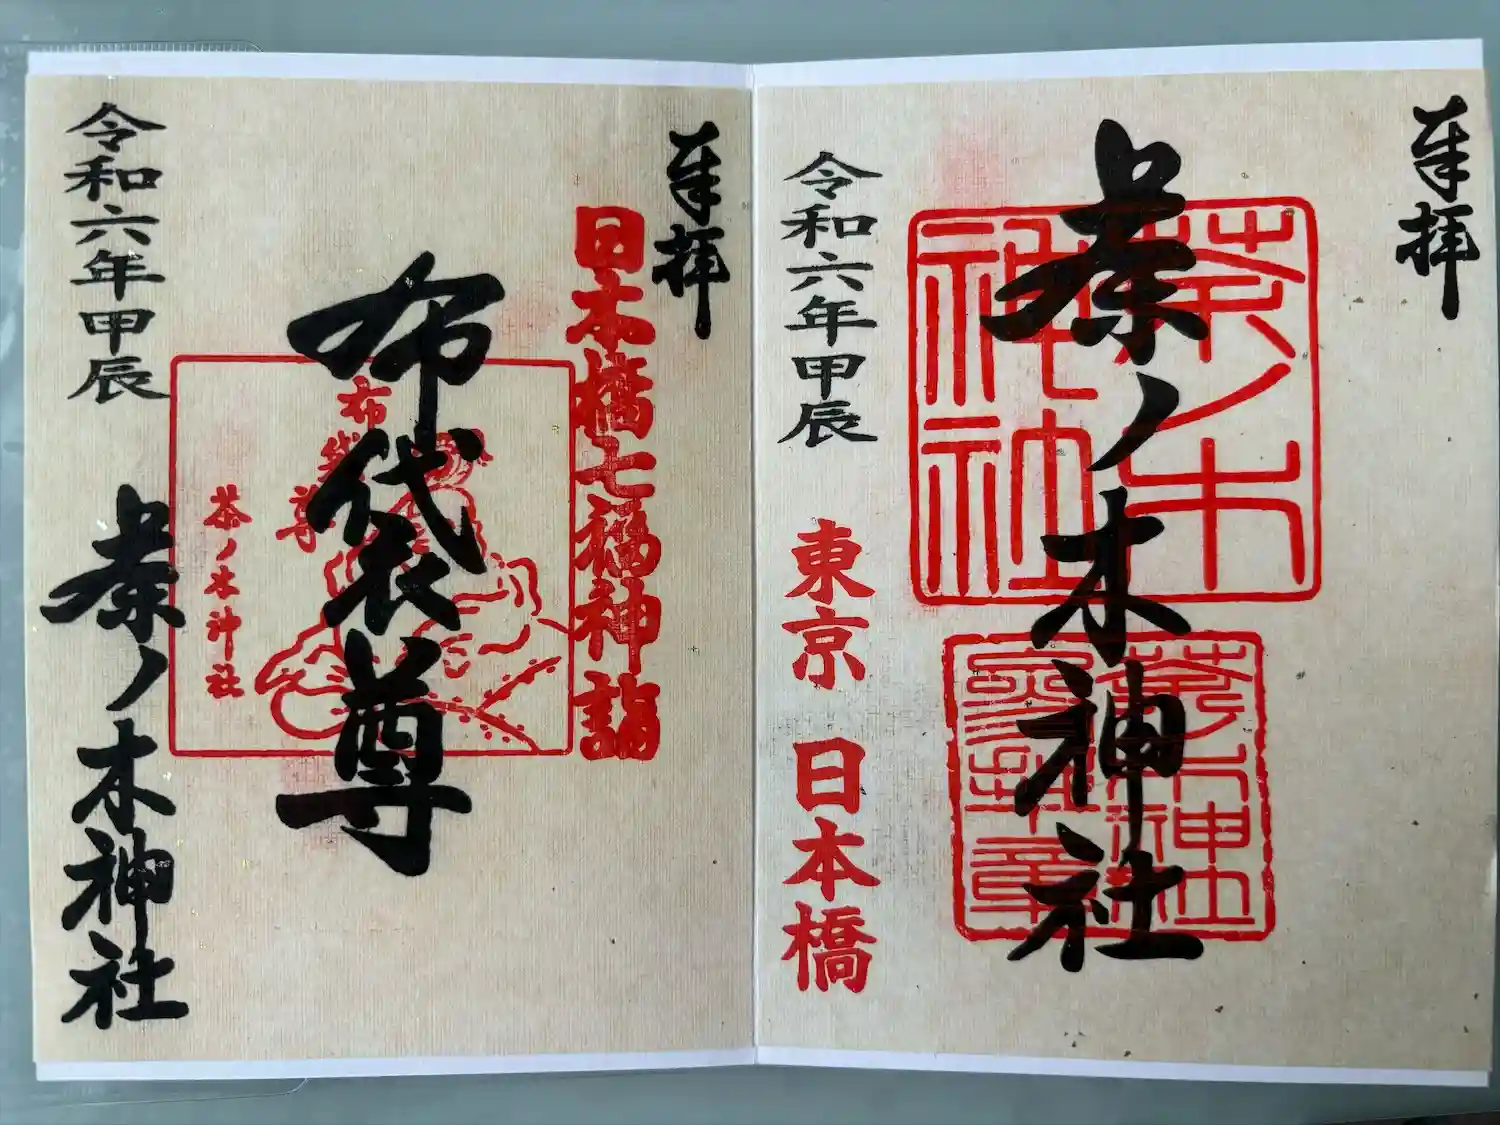 奉拝
茶ノ木神社
茶ノ木
神社
令和六年甲辰
東京 日本橋
奉拝
日本橋七福神詣
布袋尊
布袋尊
茶ノ木神社
令和六年甲辰
茶ノ木神社